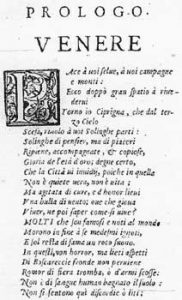 PROLOGO.
VENERE
PAce à uoi selue, à uoi campagne
e monti:
Ecco doppò gran spatio à riue-
derui
Torno io Ciprigna, che dal ter-
zo Cielo
Scesi, riuolo à uoi Solinghe parti:
Solinghe di pensier, ma di piaceri
Ripiene, accompagnate, & copiose,
Gloria de l'età d'oro; degne certo,
Che la Città ui inuidij, poiche in quella
Non è quiete uera, non è uita:
Ma agitata da cure, e d'ambition
Vna balla di neutri, one che gioua
Viuer, ne poi saper come si uiue?
MOLTI che son famosi e noti al mondo
Morono in fine à se medesmi ignoti,
E lor resta di fama un roco suono.
In questi, non horror, ma lieti aspetti
Di Boscareccie fronde non percuote
Romor di fiera tromba, ò d'armi scosse:
Non è di sangue human bagnato il suolo:
Non si sentono qui discordie ò liti: